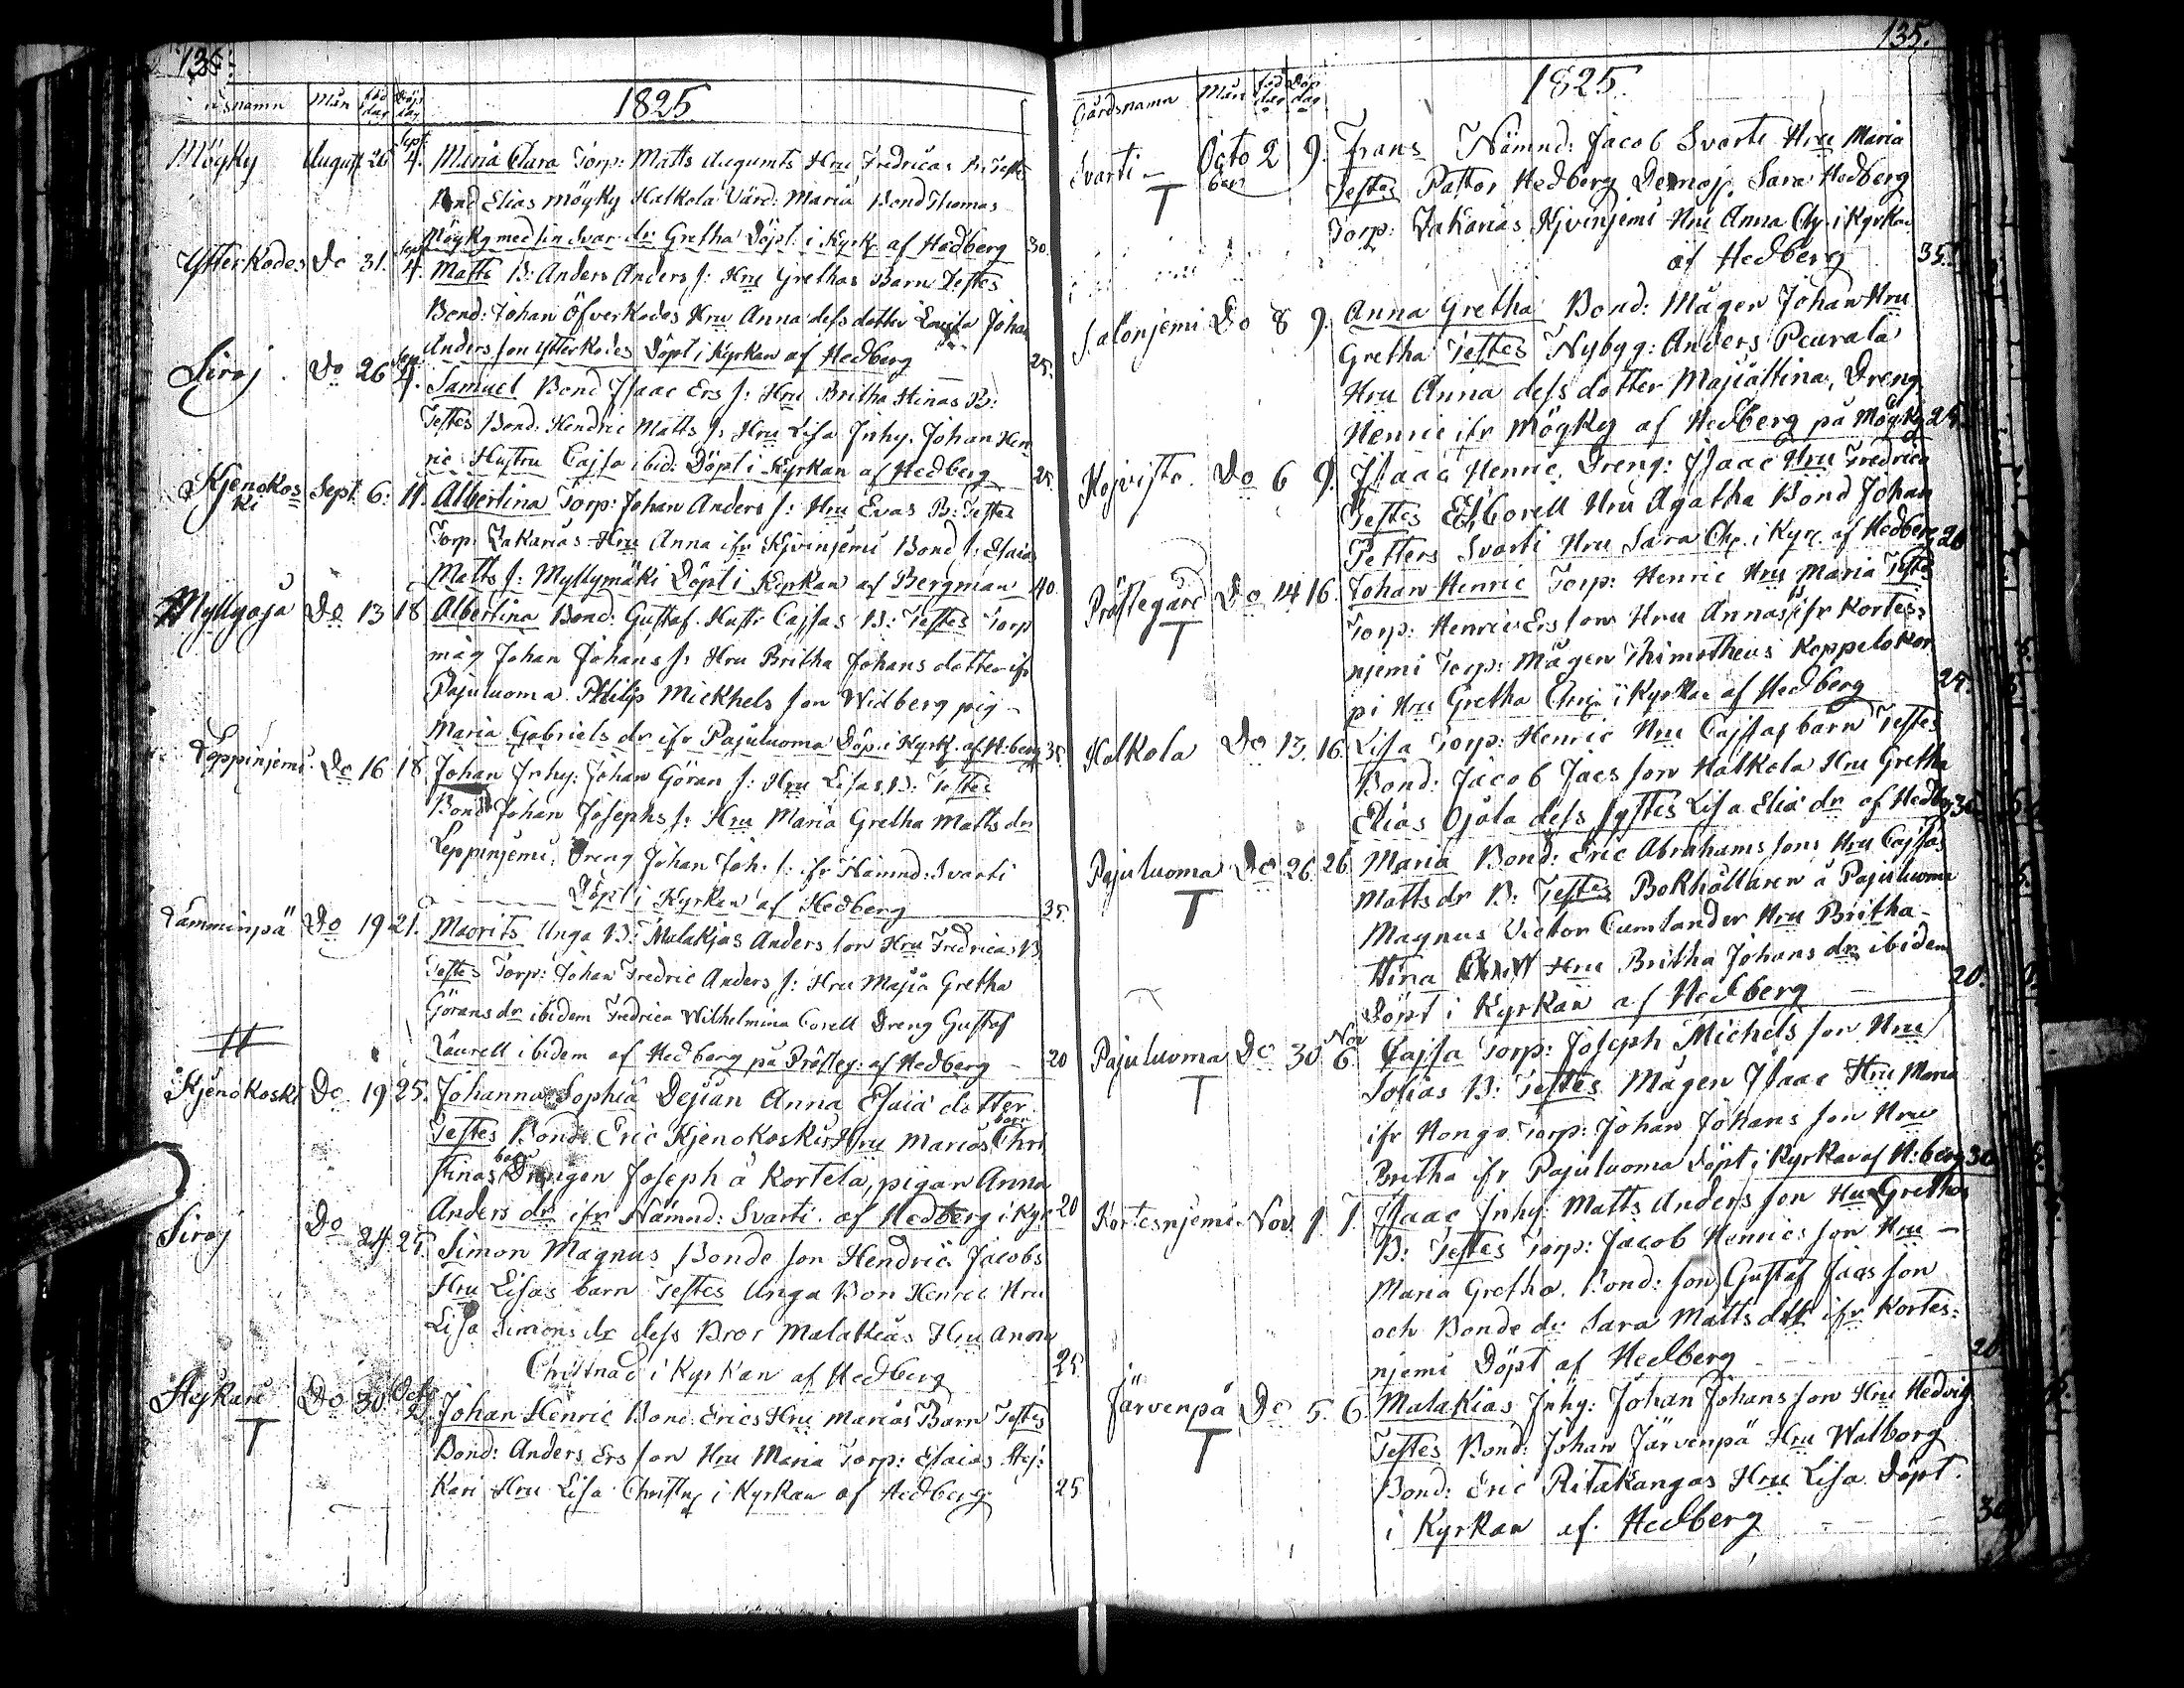 135.
Månn född dag Döp dag 1825
Möyky August 26 Sept 4. Maria Clara Torp: Matts Augumts Hru Fredricas B: Testes
Bond Elias möyky Halkola Värd: Maria Bond Thomas
Möyky med sin Svär dr Gretha Döpt i Kyrk af Hedberg 30.
Ytterkodes Do 31. Sept 4. Matts B: Anders Anders s: Hru Grethas Barn Testes
Bond: Johan Öfverkodes Hru Anna dess dotter Lovisa Johan
Anders son Ytterkodes Döpt i Kyrkan af Hedberg 25.
Siroj. Do 26 Sep 4. Samuel Bond Isaac Ers s: Hru Britha Stinas B:
Testes Bond: Hendric Matts s: Hru Lisa Inhy. Johan Hen
ric Hustru Cajsa ibid: Döpt i Kyrkan af Hedberg 25.
Kjenokos
ki Sept 6: 11. Albertina Torp: Johan Anders s: Hru Evas B: Testes
Torp: Zakarias Hru Anna ifr Kjvinjemi Bond s: Esaias
Matts s: Myllymäki Döpt i Kyrkan af Bergman 40.
Myllyoja Do 13 18 Albertina Bond: Gustaf. Hustr Cajsas B: Testes Torp
måg Johan Johans s: Hru Britha Johans dotter ifr
Pajuluoma Philip Mickhels son Widberg pig
Maria Gabriels dr ifr Pajuluoma Döp. i Kyrk. af H:berg 35.
Leppinjemi Do 16 18 Johan Inhy: Johan Göran s: Hru Lisas B: Testes
Bond Johan Josephs s: Hru Maria Gretha Matts dr
Leppinjemi, Dreng Johan Joh: s: ifr Nämnd: Svarti
Döpt i Kyrkan af Hedberg 35.
Lämminpä Do 19 21. Maorits Unga B: Malakjas Anders son Hru Fredricas B.
Testes Torp: Johan Fredric Anders s: Hru Majsa Gretha
Görans dr ibidem Fredrica Wilhelmina Corell Dreng Gustaf
Laurell ibidem af Hedberg på Prösteg: af Hedberg 20
Kjenokoski Do. 19 25. Johanna Sophia Dejian Anna Esaiæ dotter
Testes Bond: Eric Kjenokoski Hru Marias barn Chri
stinas barn Drengen Joseph å Kortela, pigan Anna
Anders dr ifr Nämnd: Svarti. af Hedberg i Kyr: 20
Siroj Do 24 25. Simon Magnus Bonde son Hendric Jacobs
Hru Lisas barn Testes Unga Bon Henric Hru
Lisa Simons dr dess Bror Malakias Hru Anna
Christnad i Kyrkan af Hedberg 25.
Hejkari T Do 30 Octo 2 Johan Henric Bond Erics Hru marias Barn Testes
Bond: Anders Ers son Hru Maria Torp: Esaias Hej:
kari Hru Lisa Christn. i Kyrkan af Hedberg 25
135.
Gårdsnamn Månn född dag Döp dag 1825.
Svarti T October 2 9. Frans Nämnd: Jacob Svarti Hru Maria
Testes Pastor Hedberg Demoj. Sara Hedberg
Torp: Zakarias Kjvinjemi Hru Anna Ch. i Kyrkan
af Hedberg 35.
Salonjemi Do 8 9. Anna Gretha Bond: Mågen Johan Hru
Gretha Testes Nybyg: Anders Peurala
Hru Anna dess dotter Majastina, Dreng
Henric ifr Möyky af Hedberg på Möyky 25.
Kojvisto. Do 6 9. Isaac Henric, Dreng: Isaac Hru Fredrica
Testes Es: Corell Hru Agatha Bond Johan
Petters Svarti Hru Sara Ch. i Kyrk. af Hedberg 20
Pröstegård T Do 14 16. Johan Henric Torp: Henric Hru Maria Testes
Torp: Henric Ers son Hru Annas ifr Kortes:
njemi Torp: Mågen Thimotheus Koppelokor
pi Hru Gretha Chr. i Kyrkan af Hedberg 25.
Halkola Do 13. 16. Lisa Torp: Henric Hru Cajsas barn Testes
Bond: Jacob Jacs son Halkola Hru Gretha
Elias Ojala dess systes Lisa Eliæ dr af Hedbg. 30.
Pajuluoma T Do 26. 26 Maria Bond: Eric Abrahams sons Hru Cajsas
Matts dr B: Testes Bokhållaren å Pajuluoma
Magnus Victor Cumlander Hru Britha
Stina Hru Britha Johans dr ibidem
Döpt i Kyrkan af Hedberg 20.
Pajuluoma T Do 30 Nov 6. Cajsa Torp: Joseph Michels son Hru
Sofias B: Testes Mågen Isaac Hru Maria
ifr Hongo Torp: Johan Johans son Hru
Britha ifr Pajuluoma Döpt i Kyrkan af H:berg 30
Kortesnjemi Nov. 1 1. Isaac Inhy: Matts Anders son Hru Grethas
B: Testes Torp: Jacob Henrics son Hru
Maria Gretha. Bond: son Gustaf Jacs son
och Bonde dr Sara Matts dtr ifr Kortes:
njemi Döpt af Hedberg 20
Järvenpä T Do 5. 6. Malakias Inhy: Johan Johans son Hru Hedvig
Testes Bond: Johan Järvenpä Hru Walborg
Bond: Eric Ritakangas Hru Lisa Döpt.
i Kyrkan af. Hedberg 30